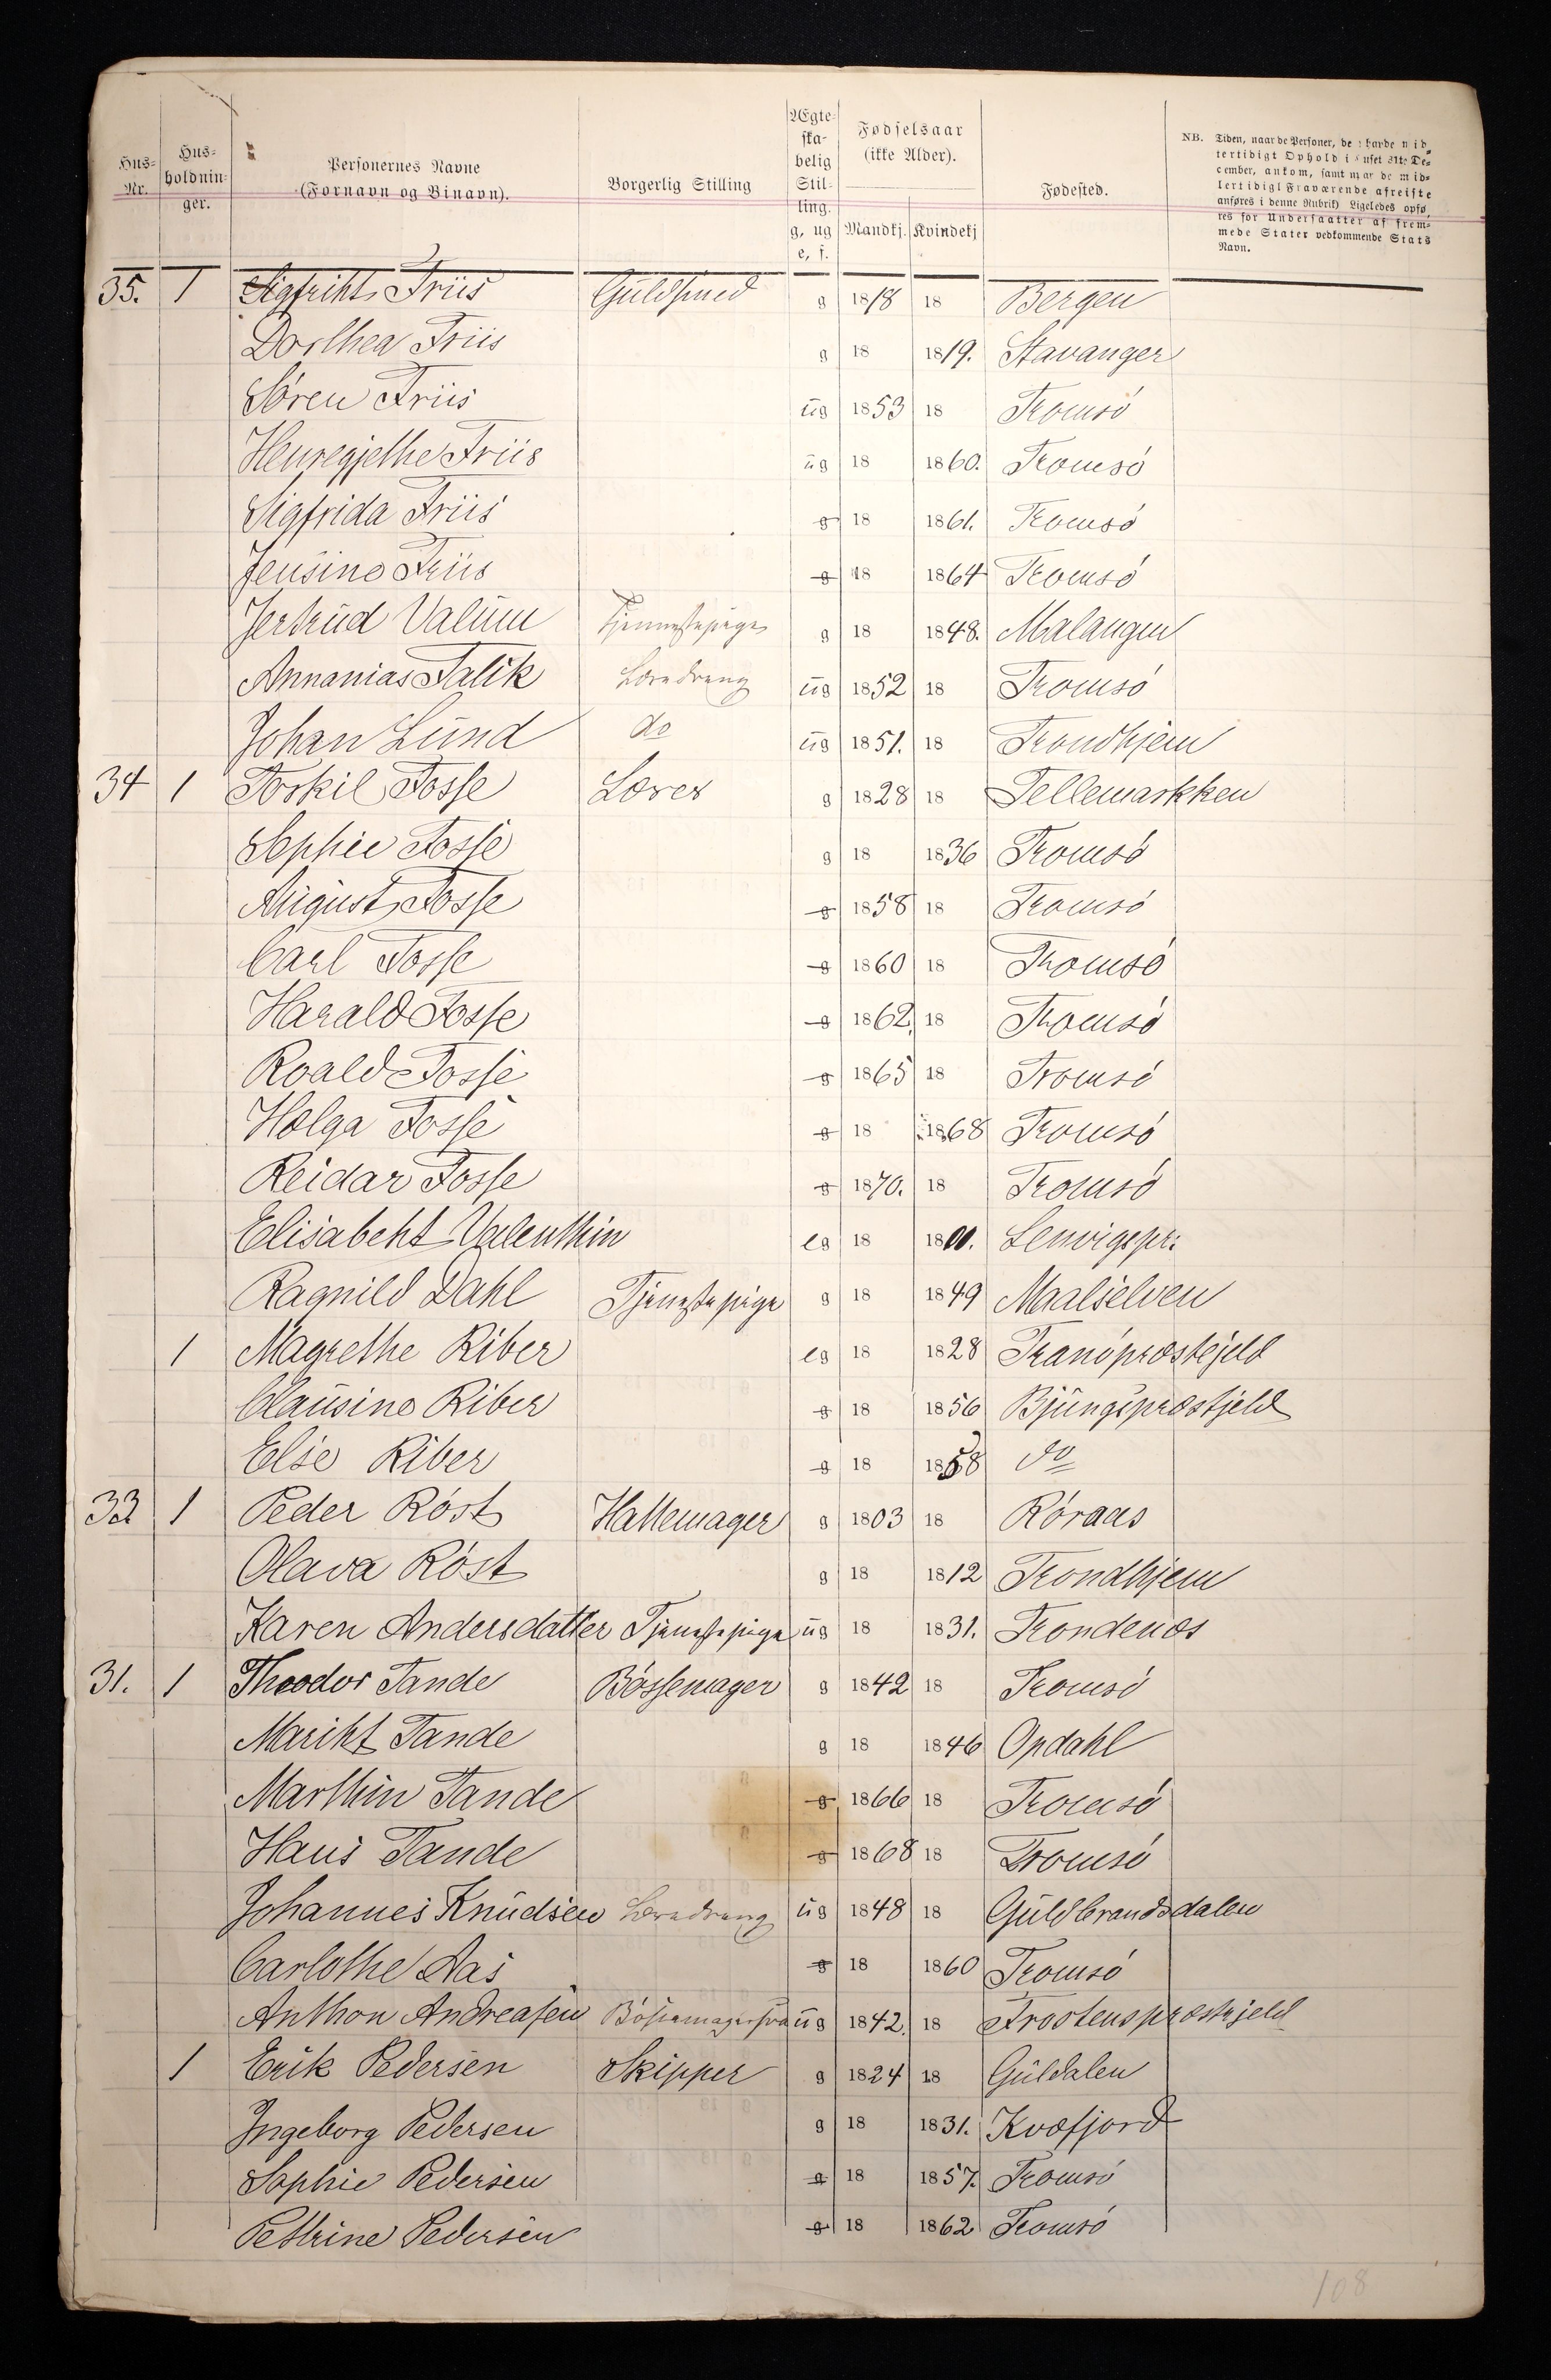 Hus-Nr. Hus-holdnin-ger. Personernes Navne (Fornavn og Binavn). Borgerlig Stilling Ægte-ska-belig Stil-ling. g, ug e, f. Fødselsaar (ikke Alder). Mandkj. Kvindekj Fødested.
NB. Tiden, naar de Personer, de havde mid-
lertidigt Ophold i Huset 31te De-
cember, ankom, samt naar de mid-
lertidigt Fraværende afreiste
anføres i denne Rubrik) Ligeledes opfø-
res for Undersaatter af frem-
mede Stater vedkommende Stats
Navn.
35. 1 Sigfriht Friis Guldsmed g 1818 18 Bergen
Dorthea Friis g 18 1819. Stavanger
Sören Friis ug 1853 18 Tromsö
Henregjethe Friis ug 18 1860. Tromsö
Sigfrida Friis g 18 1861. Tromsö
Jensine Friis g 18 1864 Tromsö
Jertrud Valum Tjennestepige g 18 1848. Malangen
Annanias Falik Læredreng ug 1852 18 Tromsö
Johan Lund do ug 1851. 18 Trondhjem
34 1 Torkil Fosse Lærer g 1828 18 Tellemarkken
Sophie Fosse g 18 1836 Tromsö
August Fosse g 1858 18 Tromsö
Carl Fosse g 1860 18 Tromsö
Harald Fosse g 1862. 18 Tromsö
Roald Fosse g 1865 18 Tromsö
Helga Fosse g 18 1868 Tromsö
Reidar Fosse g 1870. 18 Tromsö
Elisabeht Valenthin eg 18 1800. Lenvigspr:
Ragnild Dahl Tjenestepige g 18 1849 Maalselven
1 Magrethe Riber eg 18 1828 Tranöpræstejeld
Clausine Riber g 18 1856 Bjungspræstjeld
Else Riber g 18 1858 do
33 1 Peder Röst Hattemager g 1803 18 Röraas
Olava Röst g 18 1812 Trondhjem
Karen Andersdatter Tjenestepige ug 18 1831. Trondenæs
31. 1 Theodor Tande Bössemager g 1842 18 Tromsö
Mariht Tande g 18 1846 Opdahl
Marthin Tande g 1866 18 Tromsö
Hans Tande g 1868 18 Tromsö
Johannes Knudsen Læredreng ug 1848 18 Guldbrandsdalen
Carlothe Aas g 18 1860 Tromsö
Anthon Andreasen ug 1842. 18 Frostenspræstejeld
1 Erik Pedersen Skipper g 1824 18 Guldalen
Ingeborg Pedersen g 18 1831. Kvæfjord
Sophie Pedersen g 18 1857. Tromsö
Pethrine Pedersen g 18 1862 Tromsö
108